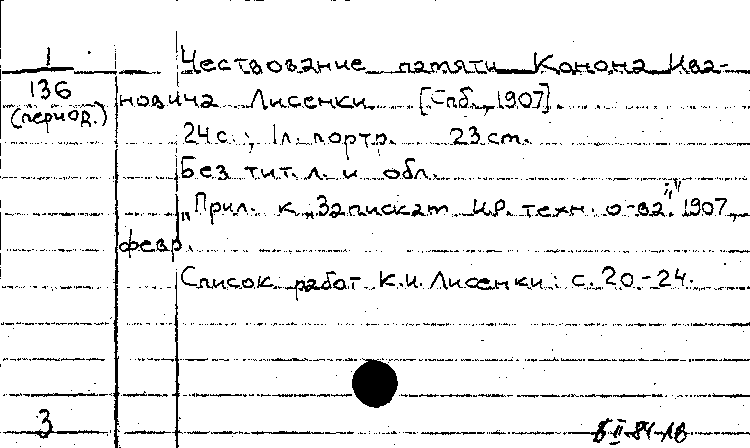 1
136
(период.)
Чествование памяти Конона Ива-
новича Лисенки. [Спб., 1907].
24 с.; 1 л. портр. 23 см.
Без тит. л. и обл.
„Прил. к „Запискам И.Р. техн. о-ва", 1907,
февр.
Список работ К.И. Лисенки: с. 20-24.
3